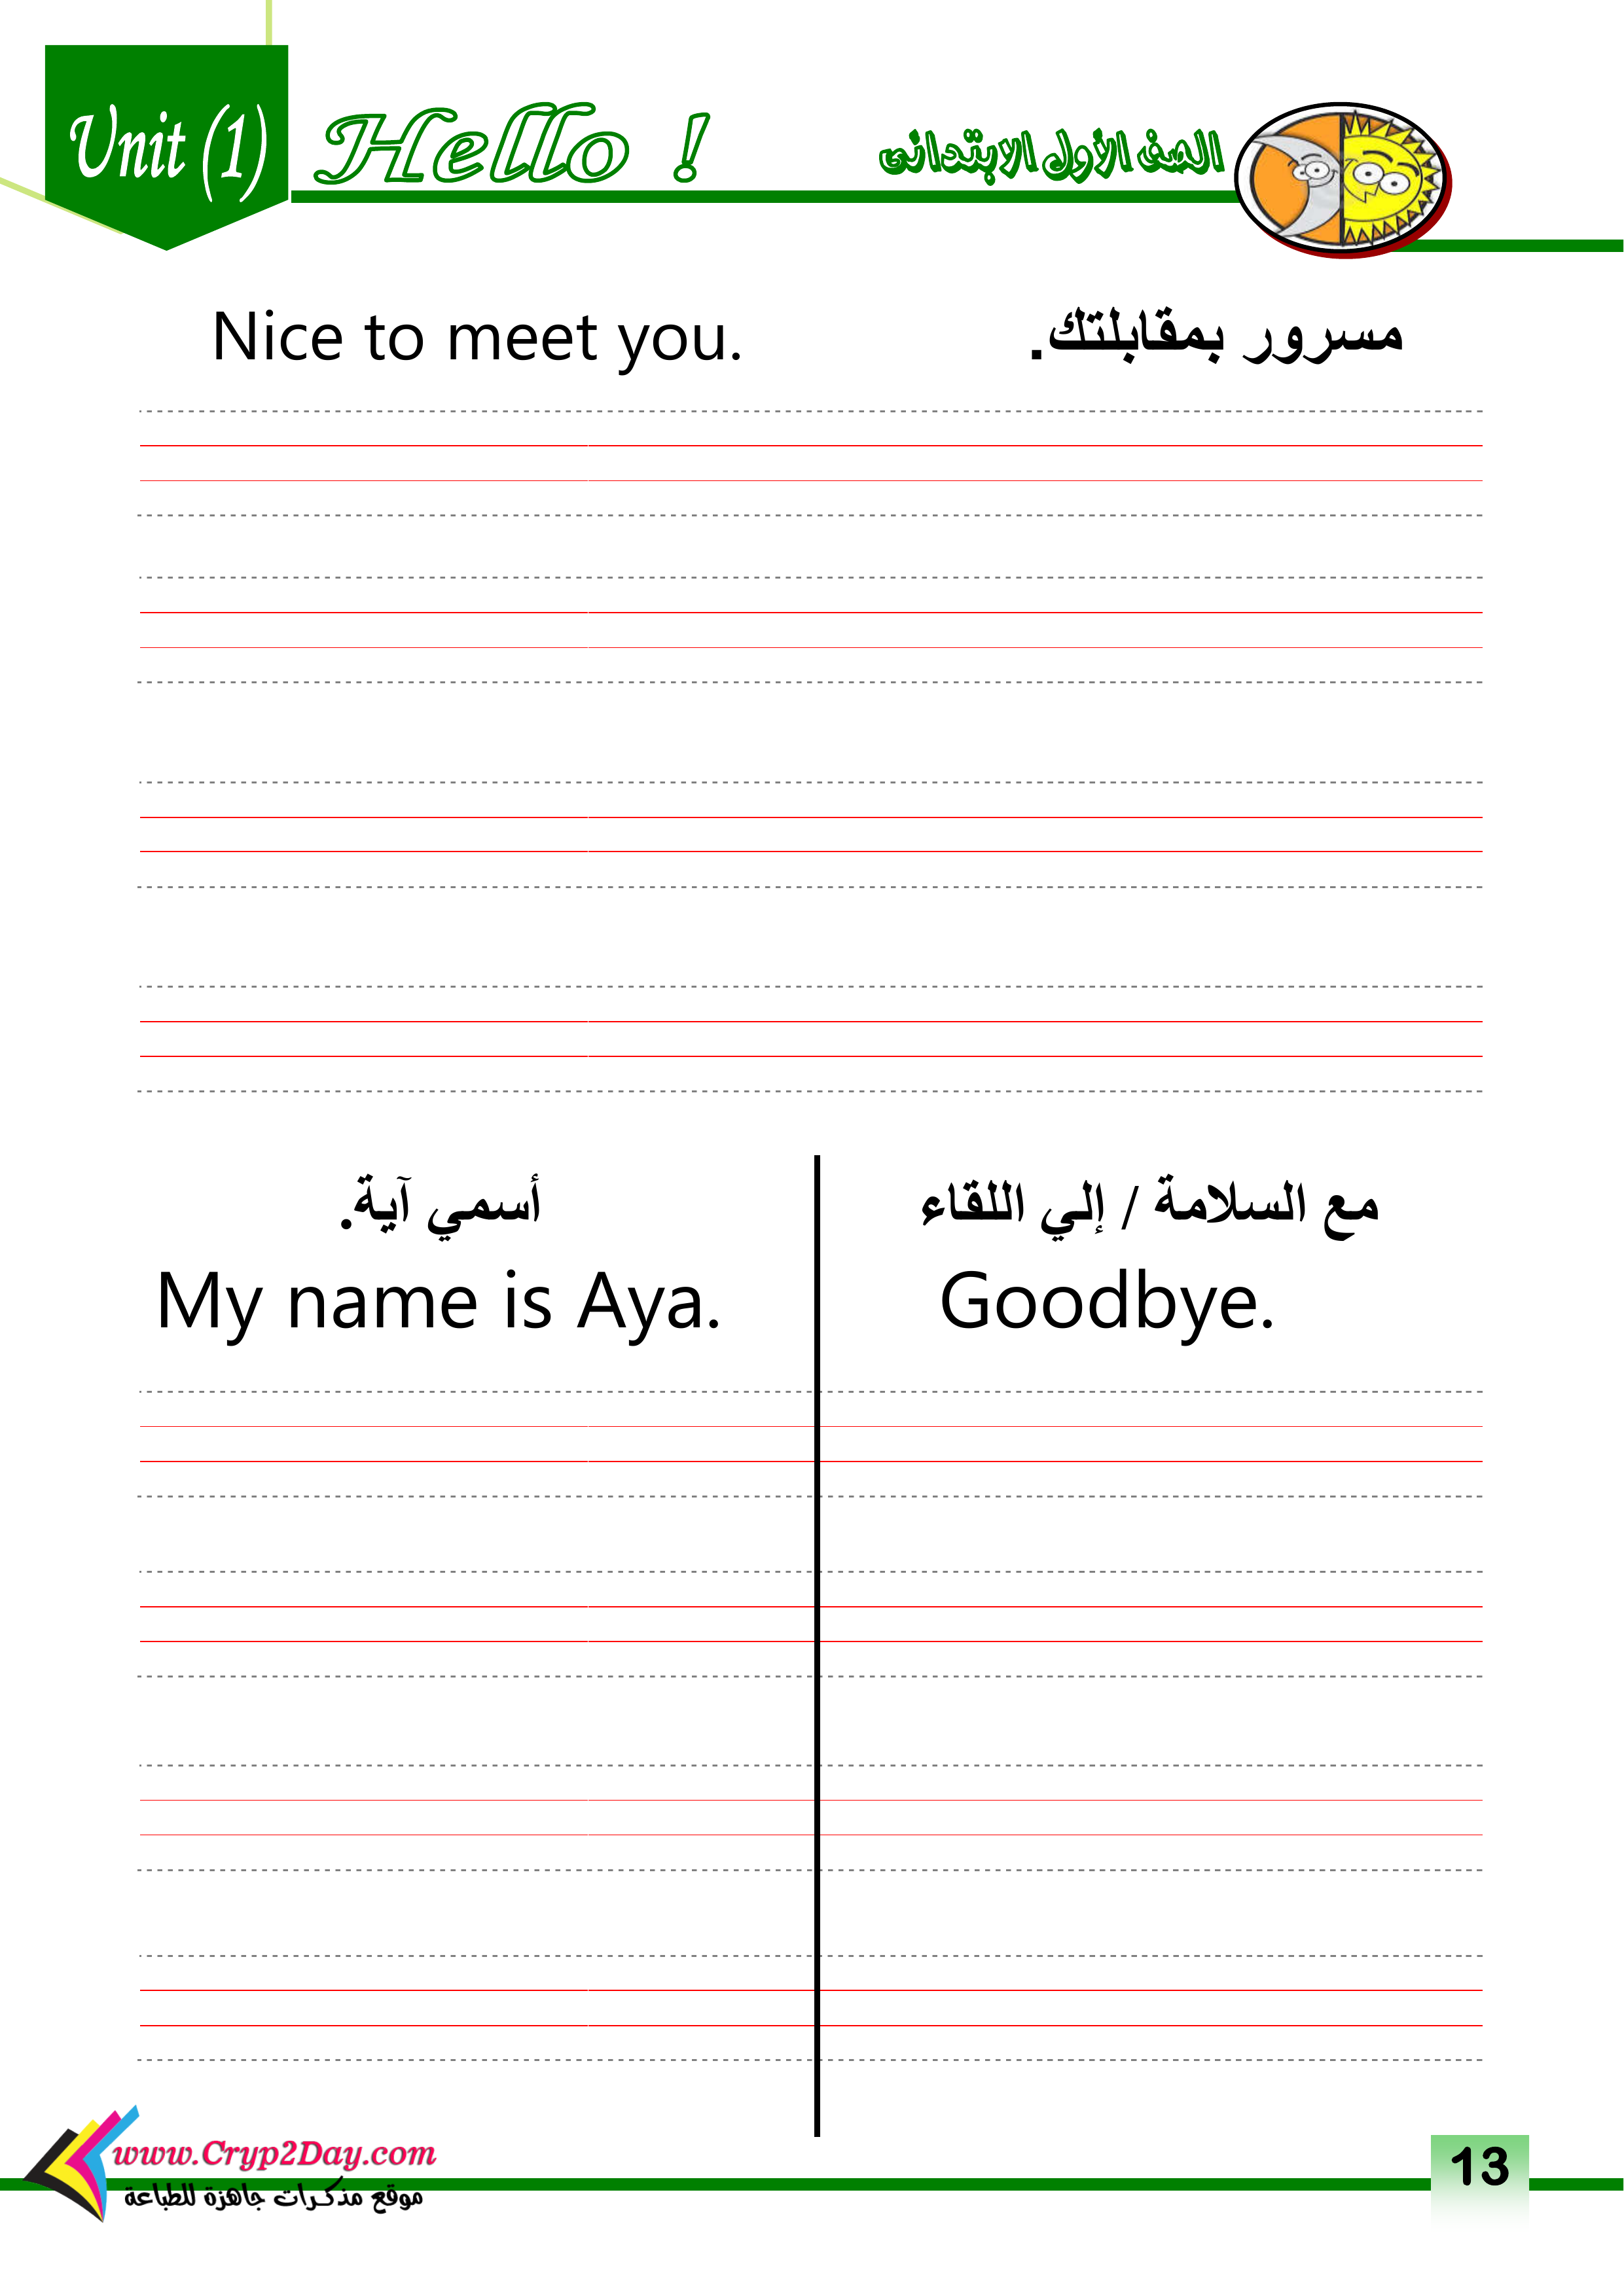 Unit (1) Hello ! الصف الأول الابتدائى
Nice to meet you. مسرور بمقابلتك.
أسمي آية. مع السلامة / إلي اللقاء
My name is Aya. Goodbye.
www.Cryp2Day.com
موقع مذكرات جاهزة للطباعة
13